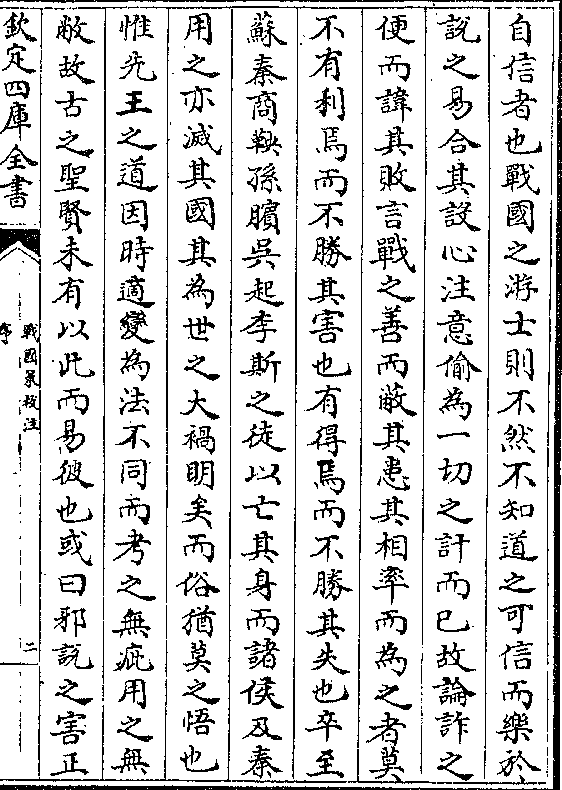 自信者也戰國之游士則不然不知道之可信而樂於
說之易合其設心注意偷為一切之計而已故論詐之
便而諱其敗言戰之善而蔽其患其相率而為之者莫
不有利焉而不勝其害也有得焉而不勝其失也卒至
蘇秦商鞅孫臏吳起李斯之徒以亡其身而諸侯及秦
用之亦滅其國其為世之大禍明矣而俗猶莫之悟也
惟先王之道因時適變為法不同而考之無疵用之無
敝故古之聖賢未有以此而易彼也或曰邪說之害正
欽定四庫全書
戰國策校注
序
二